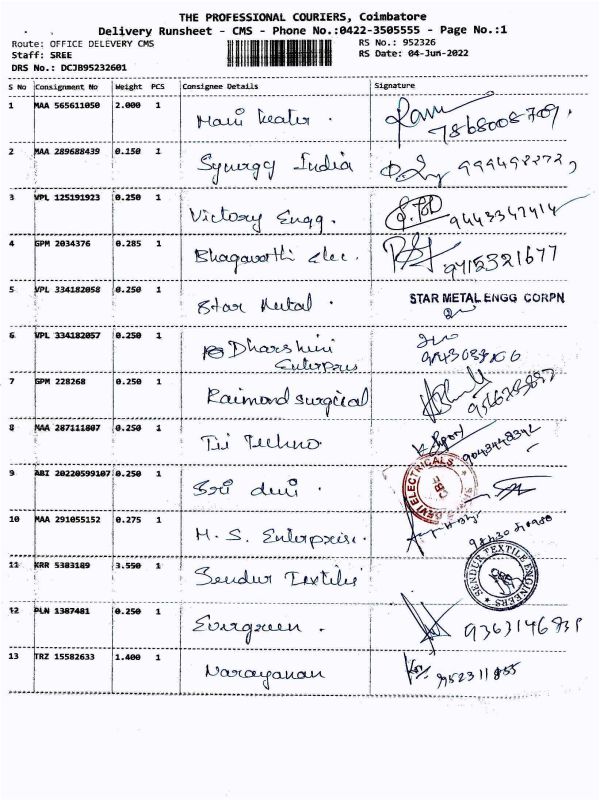 THE PROFESSIONAL COURIERS, Coimbatore
Delivery Runsheet - CMS - Phone No.:0422-3505555 - Page No.:1
Route: OFFICE DELEVERY CMS
RS No.: 952326
Staff: SREE
RS Date: 04-Jun-2022
DRS No.: DCJB95232601
S No Consignment No Weight PCS Consignee Details Signature
1 MAA 565611050 2.000 1 7868008709
2 MAA 289688439 0.150 1 Synergy India
3 VPL 125191923 0.250 1 Victory Engg. 9443347414
4 GPM 2034376 0.285 1 Bhagavathi elec. 9715321677
5 VPL 334182058 0.250 1 Star Metal . STAR METAL ENGG CORPN
6 VPL 334182057 0.250 1 Dharshini
Enterpris
7 GPM 228268 0.250 1 Raimond surgical
8 MAA 287111807 0.250 1 Techno 9043448342
9 ABI 20220599107 0.250 1 Sri devi . DEVI ELECTRICALS CBE
10 MAA 291055152 0.275 1 M. S. Enterprise.
11 KRR 5383189 3.550 1 Sendur Textiles SENDUR TEXTILE ENGINEERS
12 PLN 1387481 0.250 1 Evergreen .
13 TRZ 15582633 1.400 1 Narayanan